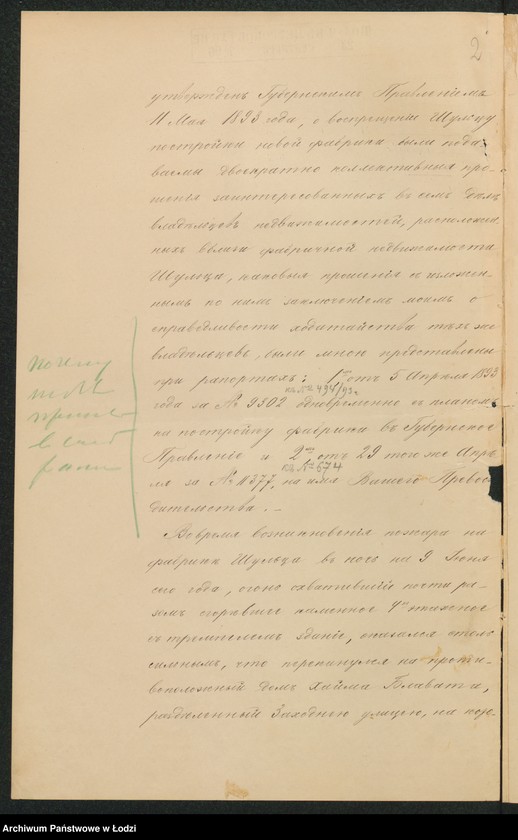 2
утвержденъ Губернскимъ Правленіемъ
11 Мая 1893 года, о воспрещеніи Шульцу
постройки новой фабрики были пода-
ваемы двукратно коллективныя про-
шенія заинтересованныхъ въ семъ дѣлѣ
владѣльцовъ недвижимостей, расположен-
ныхъ вблизи фабричной недвижимости
Шульца, каковыя прошенія съ изложен-
нымъ по нимъ заключеніемъ моимъ о
справедливости ходатайства тѣхъ же
владѣльцовъ, были мною представлены
при рапортахъ: 1е отъ 5 Апрѣля 1893
къ № 494/93г.
года за № 9302 одновременно съ планомъ
на постройку фабрики въ Губернское
Правленіе и 2е отъ 29 того же Апрѣ-
къ № 674
ля за № 11377, на имя Вашего Превосхо-
дительства. —
Во время возникновенія пожара на
фабрикѣ Шульца въ ночь на 9 Іюня
сего года, огонь охватившій почти ра-
зомъ сгорѣвшее каменное 4хъ этажное
съ тремпелемъ зданіе, оказался столь
сильнымъ, что перекинулся на проти-
воположный домъ Хаима Блавата,
раздѣленный Заходнею улицею, на кото-
почему
Archiwum Państwowe w Łodzi